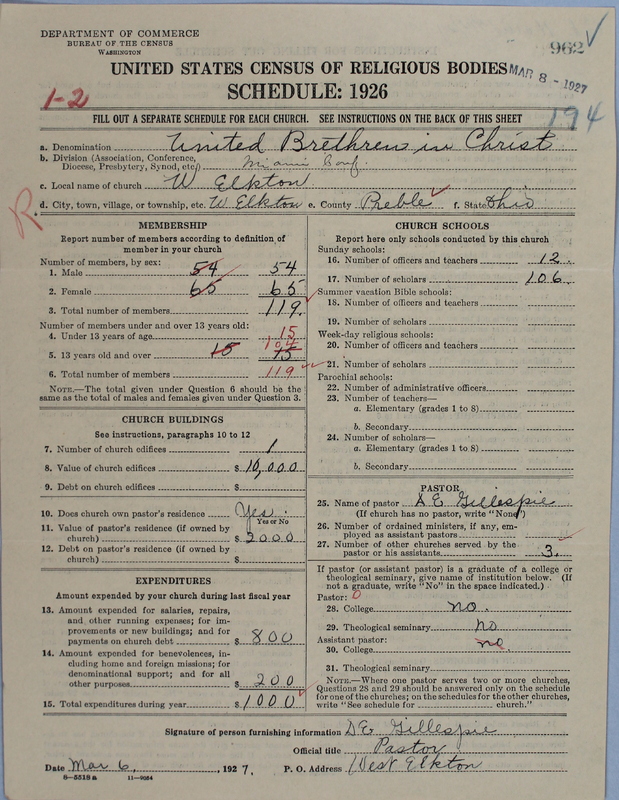 DEPARTMENT OF COMMERCE
BUREAU OF THE CENSUS
WASHINGTON
962
UNITED STATES CENSUS OF RELIGIOUS BODIES
MAR 8 - 1927
SCHEDULE: 1926
1-2
194
FILL OUT A SEPARATE SCHEDULE FOR EACH CHURCH. SEE INSTRUCTIONS ON THE BACK OF THIS SHEET
a. Denomination United Brethren in Christ
b. Division (Association, Conference,
Diocese, Presbytery, Synod, etc.) Miami Conf.
c. Local name of church W Elkton
d. City, town, village, or township, etc. W Elkton e. County Preble f. State Ohio
R.
MEMBERSHIP
Report number of members according to definition of
member in your church
Number of members, by sex:
1. Male 54 54
2. Female 65 65
3. Total number of members 119
Number of members under and over 13 years old:
4. Under 13 years of age 15
5. 13 years old and over 15 104
6. Total number of members 119
NOTE.—The total given under Question 6 should be the
same as the total of males and females given under Question 3.
CHURCH BUILDINGS
See instructions, paragraphs 10 to 12
7. Number of church edifices 1
8. Value of church edifices $ 10,000
9. Debt on church edifices $
10. Does church own pastor's residence Yes
Yes or No
11. Value of pastor's residence (if owned by
church) $ 2000
12. Debt on pastor's residence (if owned by
church) $
EXPENDITURES
Amount expended by your church during last fiscal year
13. Amount expended for salaries, repairs,
and other running expenses; for im-
provements or new buildings; and for
payments on church debt $ 800
14. Amount expended for benevolences, in-
cluding home and foreign missions; for
denominational support; and for all
other purposes $ 200
15. Total expenditures during year $ 1000
CHURCH SCHOOLS
Report here only schools conducted by this church
Sunday schools:
16. Number of officers and teachers 12.
17. Number of scholars 106.
Summer vacation Bible schools:
18. Number of officers and teachers
19. Number of scholars
Week-day religious schools:
20. Number of officers and teachers
21. Number of scholars
Parochial schools:
22. Number of administrative officers
23. Number of teachers—
a. Elementary (grades 1 to 8)
b. Secondary
24. Number of scholars—
a. Elementary (grades 1 to 8)
b. Secondary
PASTOR
25. Name of pastor D E Gillespie
(If church has no pastor, write "None")
26. Number of ordained ministers, if any, em-
ployed as assistant pastors
27. Number of other churches served by the
pastor or his assistants 3.
If pastor (or assistant pastor) is a graduate of a college or
theological seminary, give name of institution below. (If
not a graduate, write "No" in the space indicated.)
Pastor: 0
28. College no.
29. Theological seminary no
Assistant pastor:
30. College no.
31. Theological seminary
NOTE.—Where one pastor serves two or more churches,
Questions 28 and 29 should be answered only on the schedule
for one of the churches; on the schedules for the other churches,
write "See schedule for church."
Signature of person furnishing information D E Gillespie
Official title Pastor
Date Mar 6, , 1927. P. O. Address West Elkton
8—5518 a 11—9034